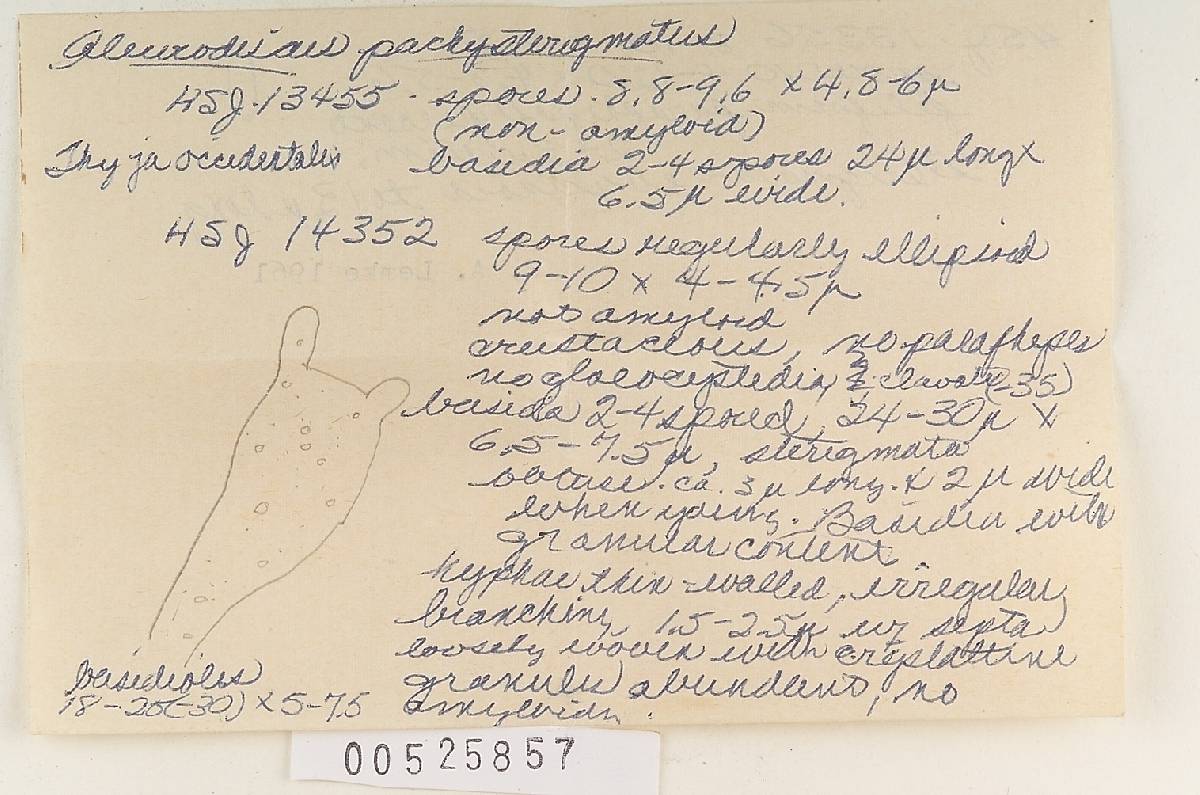 Aleurodiscus pachysterigmatus
HSJ. 13455 - spores. 8,8-9,6 x 4,8-6µ
(non-amyloid)
Thyja occidentalis basidia 2-4 spores 24µ long x
6.5µ wide.
HSJ 14352 spores regularly ellipsoid
9-10 x 4-4.5µ
not amyloid
crustaceous, no paraphyses
no gloeocystidia, clavate (-35)
basidia 2-4 spored, 24-30µ x
6,5-7.5µ, sterigmata
obtuse. ca. 3µ long. x 2µ wide
when young. Basidia with
granular content
hyphae thin-walled, irregular
branching 1,5-2.5µ w/ septa
loosely woven with
granules abundant, no
amyloidy.
basidioles
18-25(-30) x 5-7.5
A. Lemke 1961
00525857